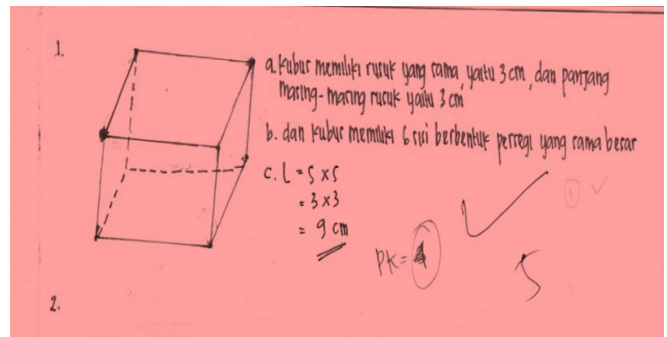 1.
a. Kubus memiliki rusuk yang sama yaitu 3 cm, dan panjang
masing-masing rusuk yaitu 3 cm
b. dan kubus memiliki 6 sisi berbentuk persegi yang sama besar
c. L = s x s
= 3 x 3
= 9 cm
PK = 4
5
1
2.